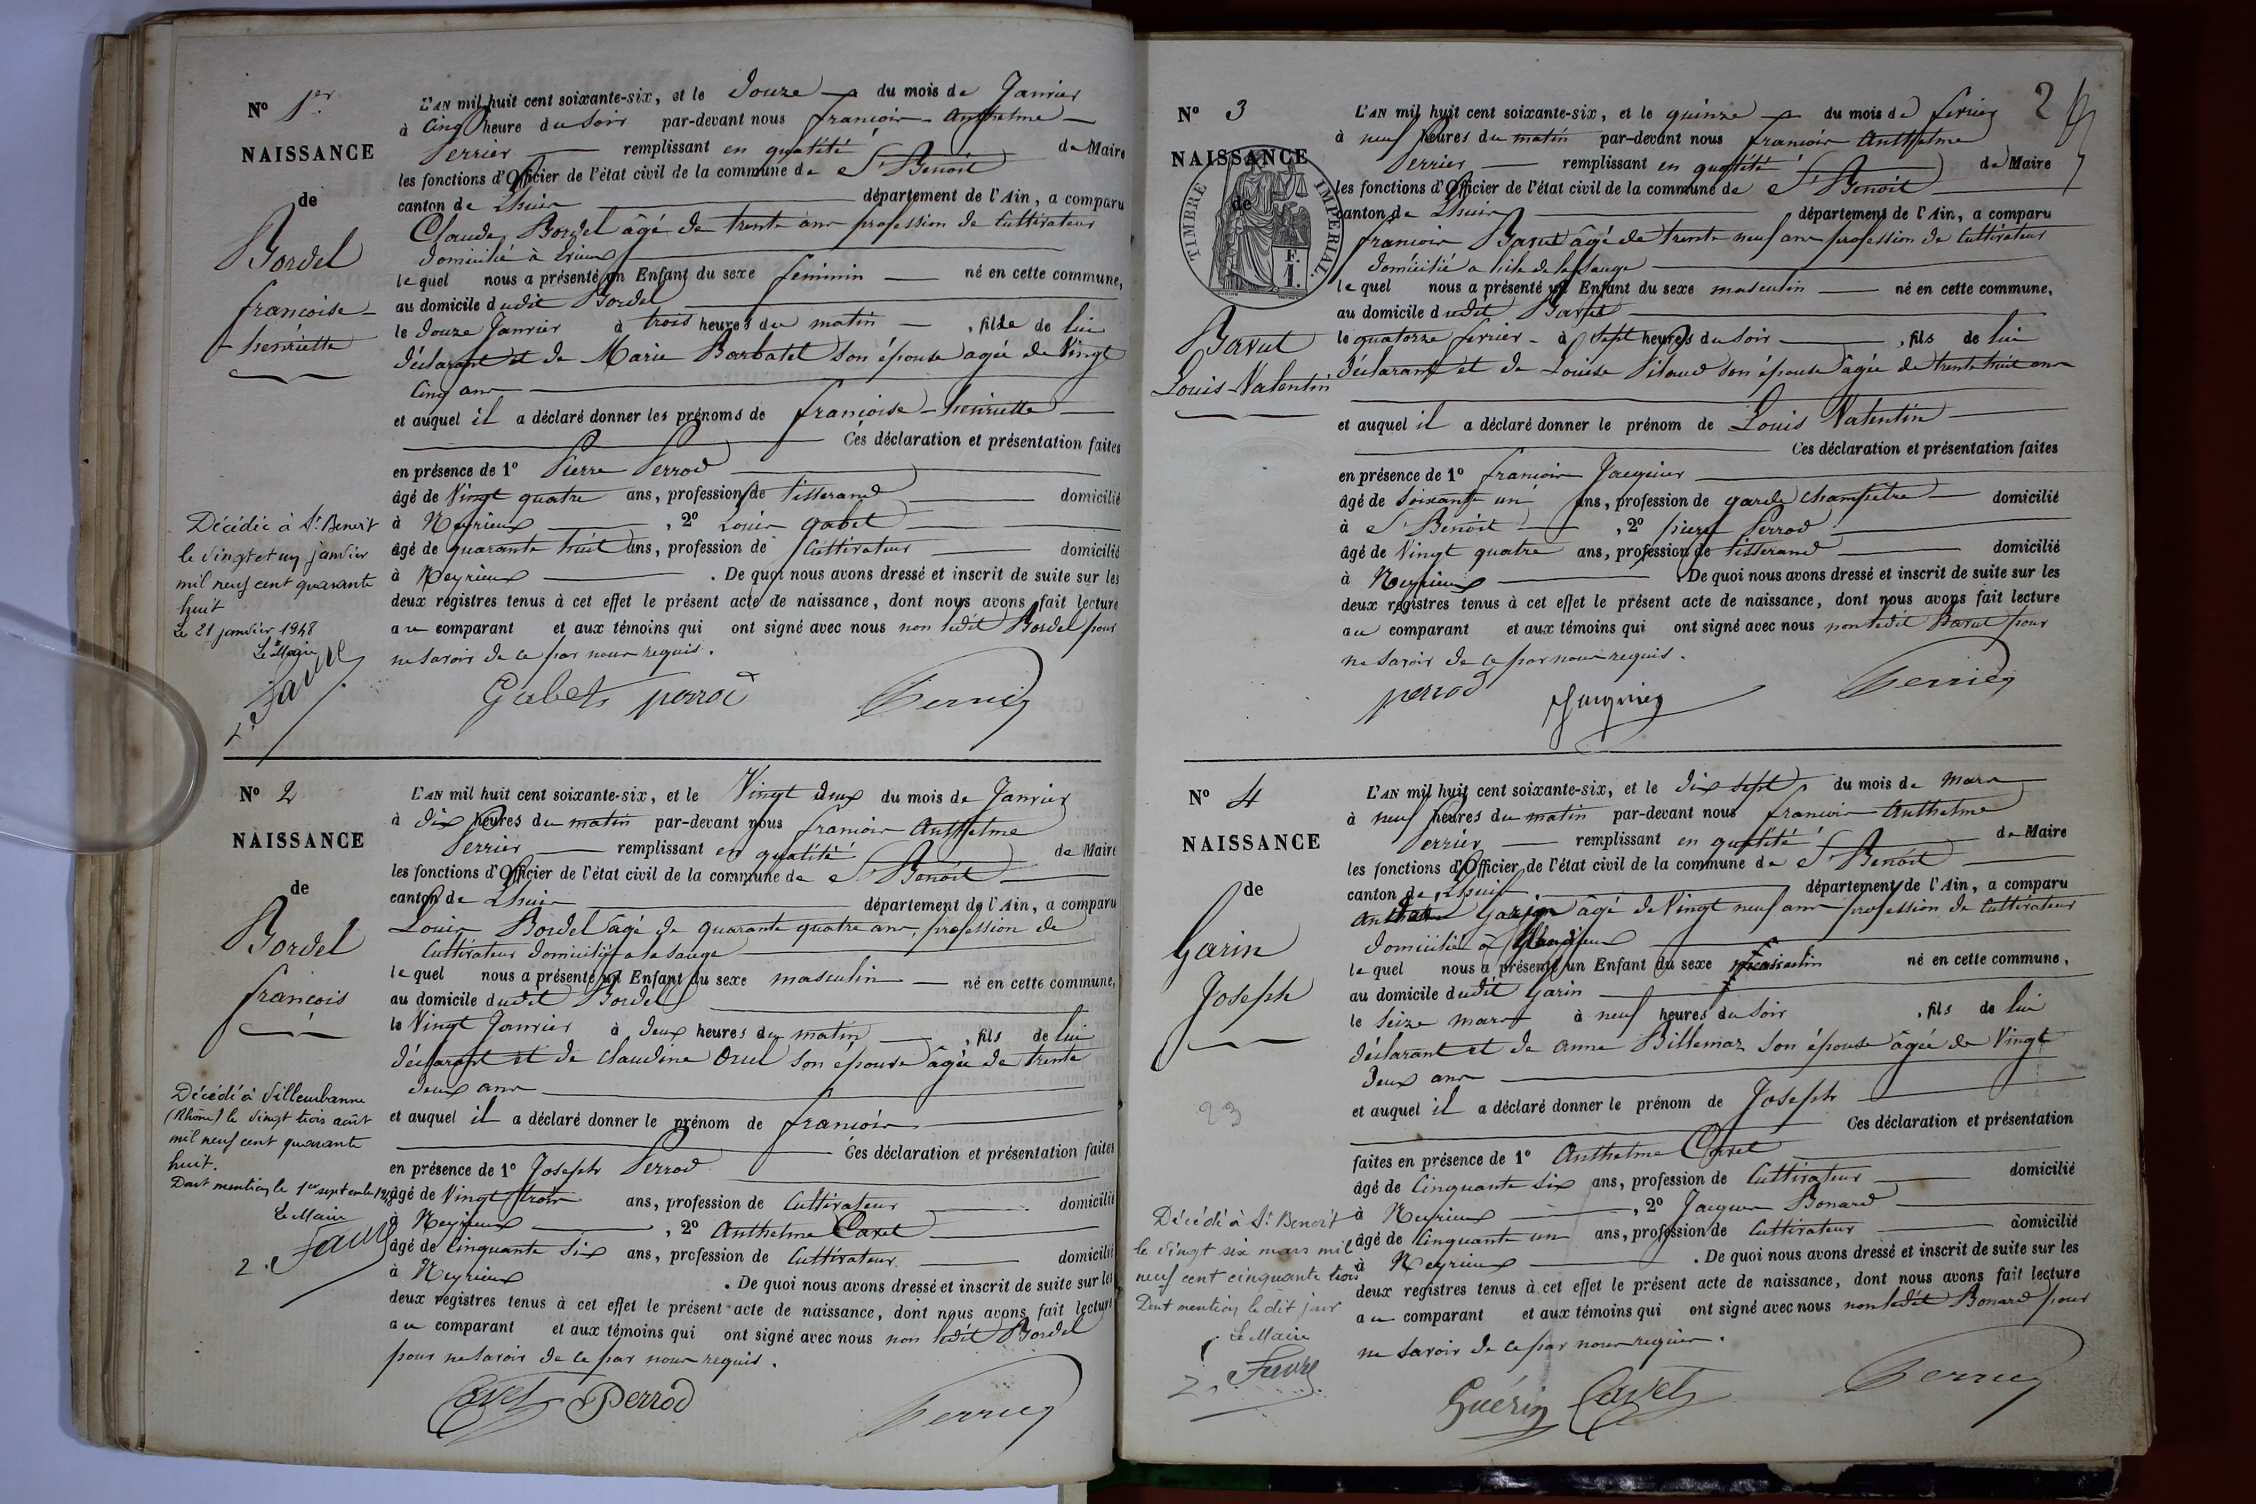 N° 1er
NAISSANCE
de
Bordel
francoise
henriette
Décédée à St Benoit
le vingt et un janvier
mil neuf cent quarante
huit
Le 21 janvier 1948
Le Maire
L'AN mil huit cent soixante-six, et le Douze du mois de Janvier
à Cinq heure du Soir par-devant nous francois Anthelme
Perrier remplissant en qualité de Maire
les fonctions d'Officier de l'état civil de la commune de St Benoit
canton de Lhuis département de l'Ain, a comparu
Claude Bordel âgé de trente ans profession de Cultivateur
domicilié à
le quel nous a présenté un Enfant du sexe féminin né en cette commune,
au domicile dudit Bordel
le douze Janvier à trois heures du matin , fille de lui
déclarant et de Marie Barbatet Son épouse agée de Vingt
Cinq ans
et auquel il a déclaré donner les prénoms de francoise henriette
Ces déclaration et présentation faites
en présence de 1° Pierre Perrod
âgé de Vingt quatre ans, profession de tisserand domicilié
à Neyrieux , 2° Louis Gabet
âgé de quarante huit ans, profession de Cultivateur domicilié
à Neyrieux . De quoi nous avons dressé et inscrit de suite sur les
deux registres tenus à cet effet le présent acte de naissance, dont nous avons fait lecture
au comparant et aux témoins qui ont signé avec nous non ledit Bordel pour
ne Savoir de ce par nous requis.
Gabet perrod Perrier
N° 2
NAISSANCE
de
Bordel
francois
Décédé à Villeurbanne
(Rhône) le vingt trois août
mil neuf cent quarante
huit.
Dont mention le 1er septembre 1948
Le Maire
2.
L'AN mil huit cent soixante-six, et le Vingt deux du mois de Janvier
à dix heures du matin par-devant nous francois Anthelme
Perrier remplissant en qualité de Maire
les fonctions d'Officier de l'état civil de la commune de St Benoit
canton de Lhuis département de l'Ain, a comparu
Louis Bordel âgé de quarante quatre ans, profession de
Cultivateur domicilié a la sauge
le quel nous a présenté un Enfant du sexe masculin né en cette commune,
au domicile dudit Bordel
le Vingt Janvier à deux heures du matin , fils de lui
déclarant et de Claudine Son épouse âgée de trente
deux ans
et auquel il a déclaré donner le prénom de francois
Ces déclaration et présentation faites
en présence de 1° Joseph Perrod
âgé de Vingt trois ans, profession de Cultivateur domicilié
à Neyrieux , 2° Anthelme Cavet
âgé de Cinquante Six ans, profession de Cultivateur domicilié
à Neyrieux . De quoi nous avons dressé et inscrit de suite sur les
deux registres tenus à cet effet le présent acte de naissance, dont nous avons fait lecture
au comparant et aux témoins qui ont signé avec nous non ledit Bordel
pour ne Savoir de ce par nous requis.
Cavet Perrod Perrier
2
N° 3
NAISSANCE
de
TIMBRE IMPERIAL.
F.
1.
Bavut
Louis-Valentin
L'AN mil huit cent soixante-six, et le quinze du mois de fevrier
à neuf heures du matin par-devant nous francois Anthelme
Perrier remplissant en qualité de Maire
les fonctions d'Officier de l'état civil de la commune de St Benoit
canton de Lhuis département de l'Ain, a comparu
francois Bavut âgé de trente neuf ans profession de Cultivateur
domicilié a de la Sauge
le quel nous a présenté un Enfant du sexe masculin né en cette commune,
au domicile dudit Bavut
le quatorze fevrier à Sept heures du Soir , fils de lui
déclarant et de Louise Pilaud Son épouse âgée de trente huit ans
et auquel il a déclaré donner le prénom de Louis Valentin
Ces déclaration et présentation faites
en présence de 1° francois Jacquier
âgé de Soixante un ans, profession de garde Champêtre domicilié
à St Benoit , 2° pierre Perrod
âgé de Vingt quatre ans, profession de tisserand domicilié
à Neyrieux . De quoi nous avons dressé et inscrit de suite sur les
deux registres tenus à cet effet le présent acte de naissance, dont nous avons fait lecture
au comparant et aux témoins qui ont signé avec nous non ledit Bavut pour
ne Savoir de ce par nous requis.
perrod Jacquier Perrier
N° 4
NAISSANCE
de
Garin
Joseph
23
Décédé à St Benoit
le vingt six mars mil
neuf cent cinquante trois
Dont mention le dit jour
Le Maire
2. Favre
L'AN mil huit cent soixante-six, et le dix sept du mois de mars
à neuf heures du matin par-devant nous francois Anthelme
Perrier remplissant en qualité de Maire
les fonctions d'Officier de l'état civil de la commune de St Benoit
canton de Lhuis département de l'Ain, a comparu
Garin âgé de Vingt neuf ans profession de Cultivateur
domicilié à
le quel nous a présenté un Enfant du sexe masculin né en cette commune,
au domicile dudit Garin
le Seize mars à neuf heures du Soir , fils de lui
déclarant et de anne Billemaz Son épouse âgée de Vingt
deux ans
et auquel il a déclaré donner le prénom de Joseph
Ces déclaration et présentation
faites en présence de 1° Anthelme Cavet
âgé de Cinquante Six ans, profession de Cultivateur domicilié
à Neyrieux , 2° Jacques Bonard
âgé de Cinquante un ans, profession de Cultivateur domicilié
à Neyrieux . De quoi nous avons dressé et inscrit de suite sur les
deux registres tenus à cet effet le présent acte de naissance, dont nous avons fait lecture
au comparant et aux témoins qui ont signé avec nous non ledit Bonard pour
ne Savoir de ce par nous requis.
Guérin Cavet Perrier